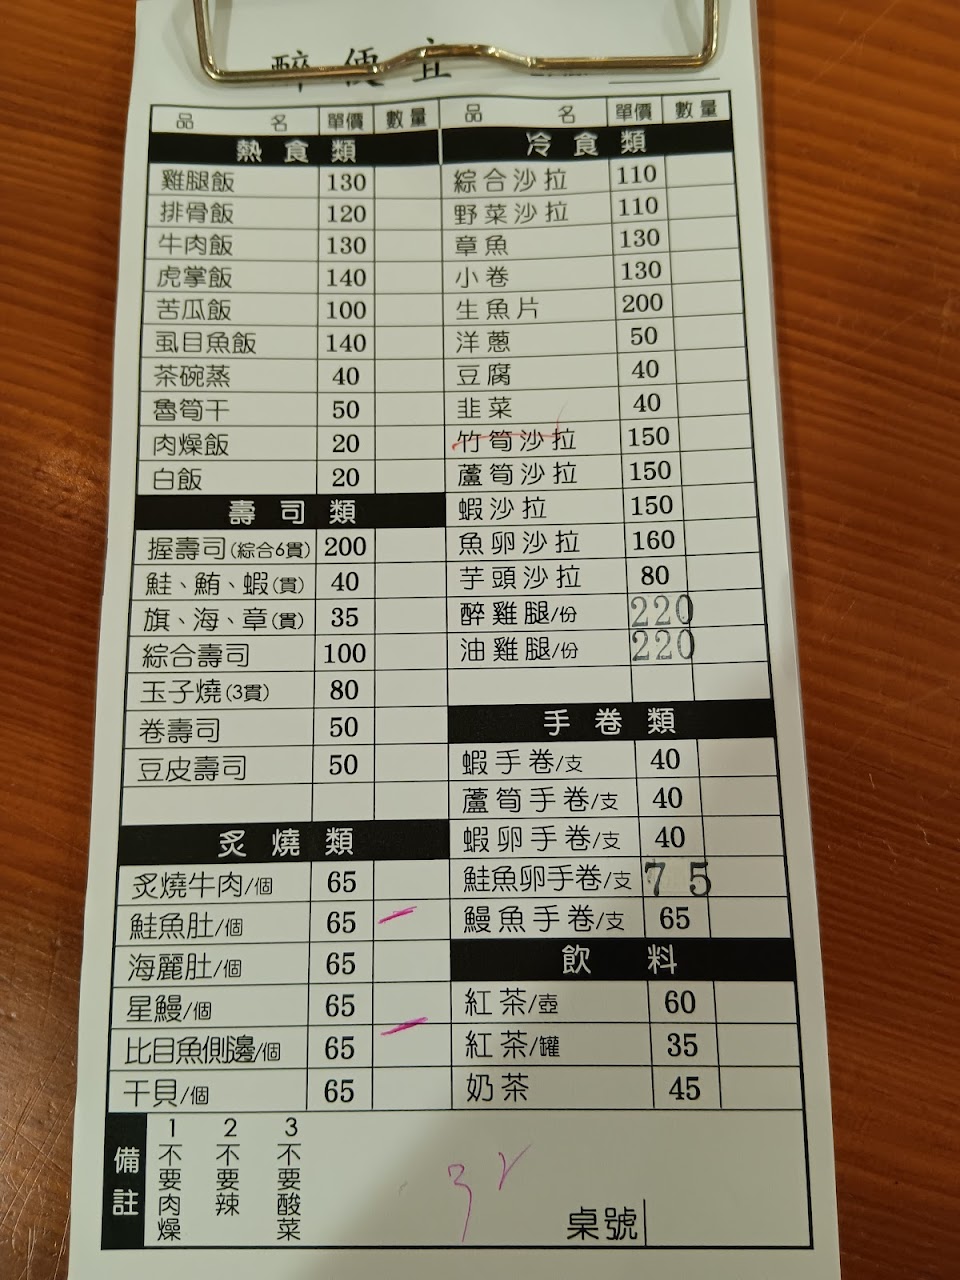 醉便宜
品名 單價 數量
熱食類
雞腿飯 130
排骨飯 120
牛肉飯 130
虎掌飯 140
苦瓜飯 100
虱目魚飯 140
茶碗蒸 40
魯筍干 50
肉燥飯 20
白飯 20
壽司類
握壽司(綜合6貫) 200
鮭、鮪、蝦(貫) 40
旗、海、章(貫) 35
綜合壽司 100
玉子燒(3貫) 80
卷壽司 50
豆皮壽司 50
炙燒類
炙燒牛肉/個 65
鮭魚肚/個 65
海麗肚/個 65
星鰻/個 65
比目魚側邊/個 65
干貝/個 65
品名 單價 數量
冷食類
綜合沙拉 110
野菜沙拉 110
章魚 130
小卷 130
生魚片 200
洋蔥 50
豆腐 40
韭菜 40
竹筍沙拉 150
蘆筍沙拉 150
蝦沙拉 150
魚卵沙拉 160
芋頭沙拉 80
醉雞腿/份 220
油雞腿/份 220
手卷類
蝦手卷/支 40
蘆筍手卷/支 40
蝦卵手卷/支 40
鮭魚卵手卷/支 75
鰻魚手卷/支 65
飲料
紅茶/壺 60
紅茶/罐 35
奶茶 45
備註
1不要肉燥
2不要辣
3不要酸菜
桌號